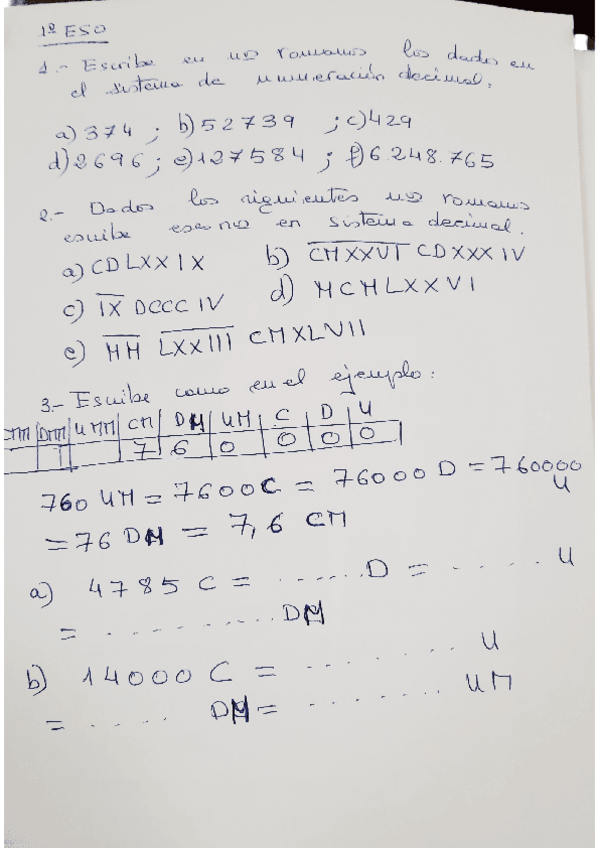 1º ESO
1.- Escribe en nos romanos los dados en
el sistema de numeración decimal.
a) 374 ; b) 52739 ; c) 429
d) 2696 ; e) 127584 ; f) 6.248.765
2.- Dados los siguientes nos romanos
escribe esos nos en sistema decimal.
a) CDLXXIX b) C̅M̅X̅X̅V̅I̅ CDXXXIV
c) I̅X̅ DCCCIV d) MCMLXXVI
e) M̅M̅ L̅X̅X̅I̅I̅I̅ CMXLVII
3.- Escribe como en el ejemplo:
CMM DMM UMM CM DM UM C D U
7 6 0 0 0 0
760 UM = 7600 C = 76000 D = 760000 U
= 76 DM = 7,6 CM
a) 4785 C = ...... D = ..... U
= .......... DM
b) 14000 C = ........ U
= ..... DM = ........ UM